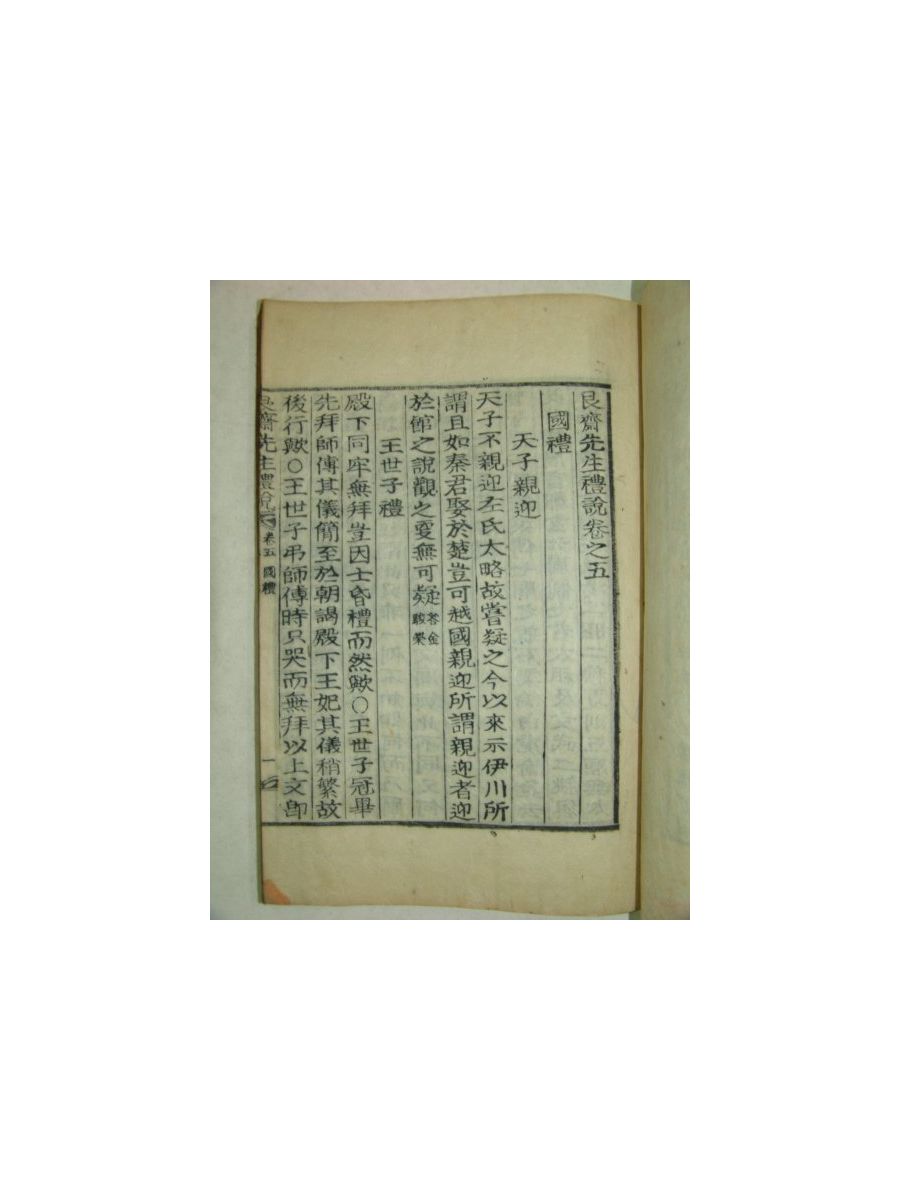 艮齋先生禮說卷之五
國禮
天子親迎
天子不親迎左氏太略故嘗疑之今以來示伊川所
謂且如秦君娶於楚豈可越國親迎所謂親迎者迎
於館之說觀之更無可疑答金駿榮
王世子禮
殿下同牢無拜豈因士昏禮而然歟○王世子冠畢
先拜師傅其儀簡至於朝謁殿下王妃其儀稍繁故
後行歟○王世子弔師傅時只哭而無拜以上文卽
艮齋先生禮說 卷五 國禮 一